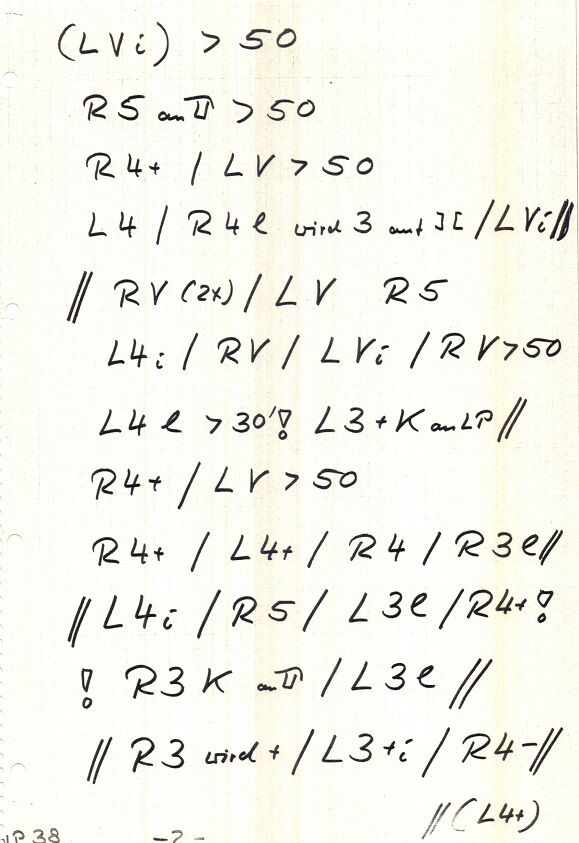 (LVi) > 50
R5 an II > 50
R4+ / LV > 50
L4 / R4l wird 3 auf II / LVi //
// RV (2x) / LV R5
L4i / RV / LVi / RV > 50
L4l > 30'! L3+K an LP //
R4+ / LV > 50
R4+ / L4+ / R4 / R3l //
// L4i / R5 / L3l / R4+!
! R3K an II / L3l //
// R3 wird + / L3+i / R4- //
// (L4+)
38 -2-